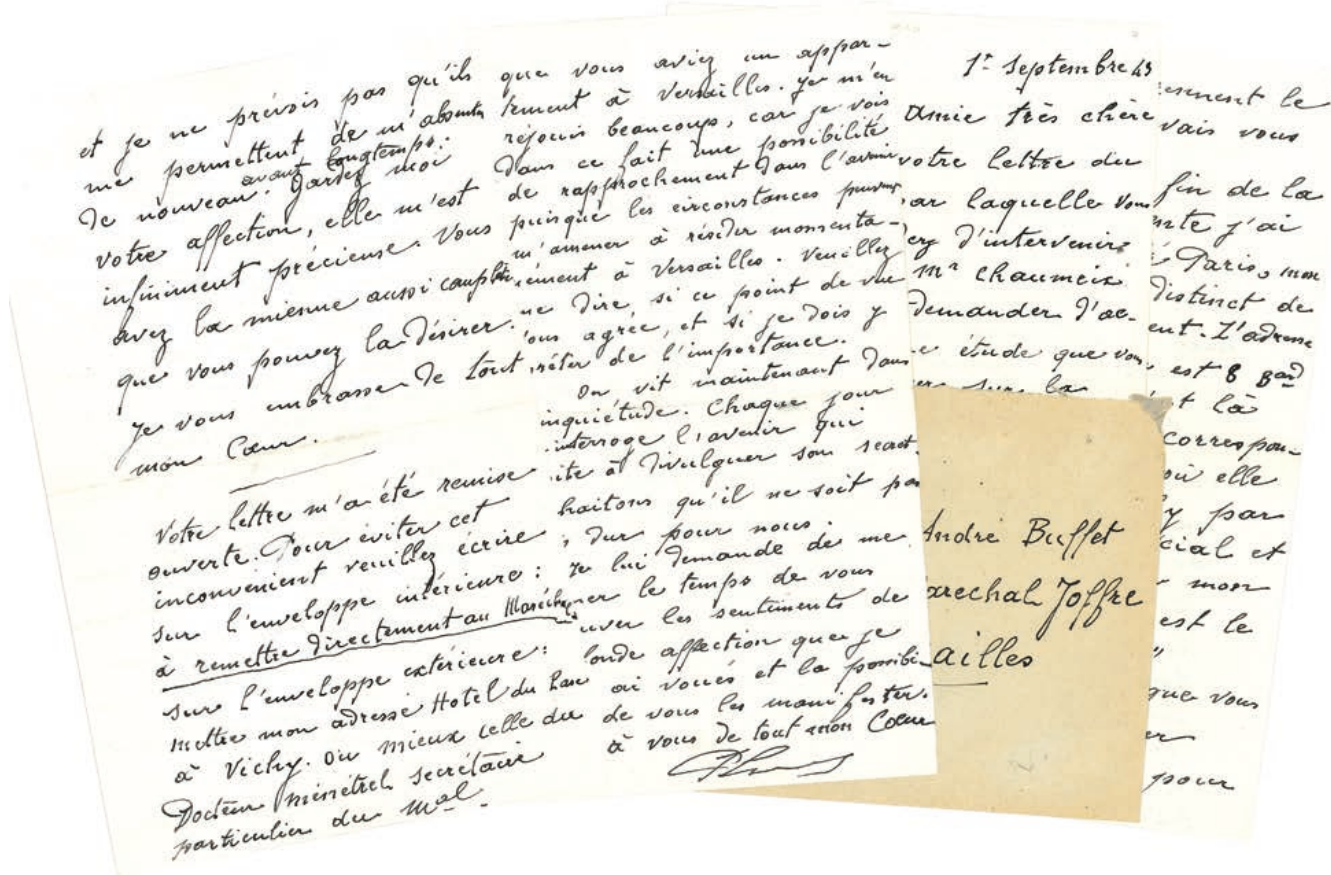 et je ne prévois pas qu'ils
me permettent de m'absenter
de nouveau avant longtemps. Gardez moi
votre affection, elle m'est
infiniment précieuse. Vous
avez la mienne aussi complète
que vous pouvez la désirer.
Je vous embrasse de tout
mon Cœur.
Votre lettre m'a été remise
ouverte. Pour éviter cet
inconvenient veuillez écrire
sur l'enveloppe intérieure :
à remettre directement au Maréchal
sur l'enveloppe extérieure :
mettre mon adresse Hotel du Parc
à Vichy. ou mieux celle du
Docteur ménétrel secrétaire
particulier du Mal.
que vous aviez un appar-
tement à Versailles. Je m'en
réjouis beaucoup, car je vois
dans ce fait une possibilité
de rapprochement dans l'avenir
puisque les circonstances peuvent
m'amener à résider momenta-
nément à Versailles. Veuillez
me dire, si ce point de vue
vous agrée, et si je dois y
prêter de l'importance.
On vit maintenant dans
inquiétude. Chaque jour
interroge l'avenir qui
ite à divulguer son secret.
haitons qu'il ne soit pas
dur pour nous.
Je lui demande de me
ner le temps de vous
uver les sentiments de
onde affection que je
ai voués et la possibi-
de vous les manifester.
à vous de tout mon Cœur
1r Septembre 43
Amie très chère
votre lettre du
ar laquelle vous
ez d'intervenir
Mr chaumeix
demander d'ac-
e étude que vous
er sur la
André Buffet
arechal Joffre
ailles
ement le
vais vous
fin de la
nte j'ai
Paris, mon
distinct de
ent. L'adresse
est 8 Bard
t là
correspon-
où elle
y par
cial et
mon
est le
que vous
er
pour